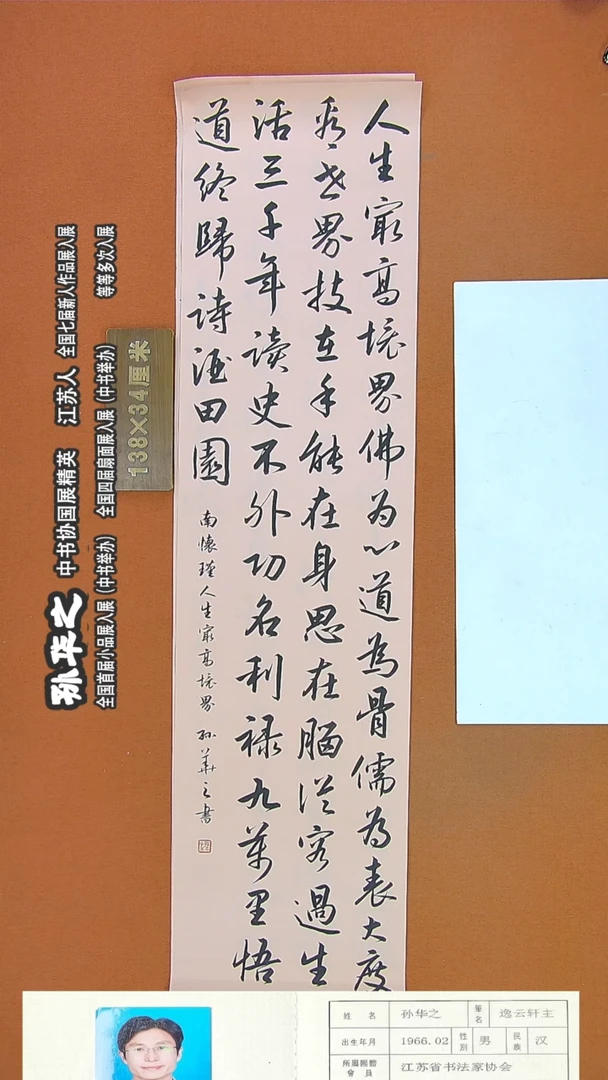 人生㝡高境界佛为心道為骨儒為表大度
看世界技在手能在身思在腦從容過生
活三千年读史不外功名利禄九萬里悟
道终歸詩酒田園
南懷瑾人生㝡高境界 孙華之書
138×34厘米
孙华之 中书协国展精英 江苏人 全国七届新人作品展入展
全国首届小品展入展（中书举办） 全国四届扇面展入展（中书举办） 等等多次入展
姓 名 孙华之 笔名 逸云轩主
出生年月 1966.02 性别 男 民族 汉
所属团体會員 江苏省书法家协会